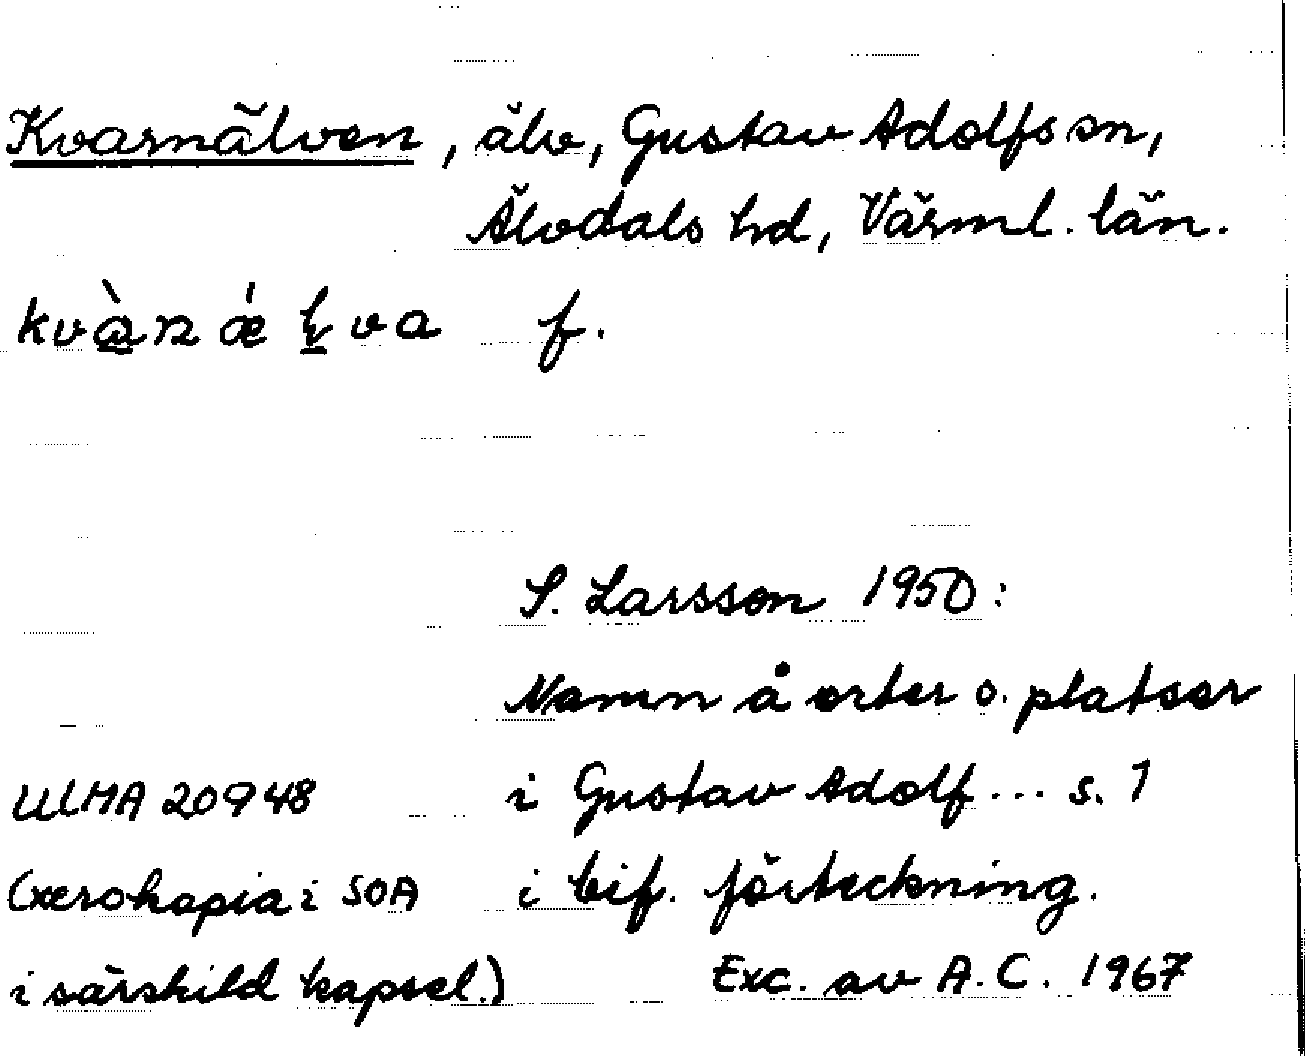 Kvarnälven, älv, Gustav Adolfs sn,
Älvdals hd, Värml. län.
f.
S. Larsson 1950:
Namn å orter o. platser
i Gustav Adolf... s. 1
i bif. förteckning.
ULMA 20948
(xerokopia i SOA
i särskild kapsel.)
Exc. av A.C. 1967